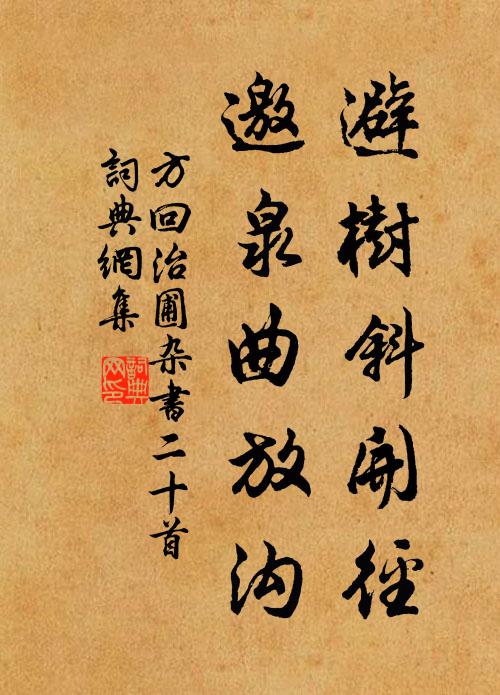 避樹斜開徑
邀泉曲放沟
方回治圃杂書二十首
詞典網集
詞典网印